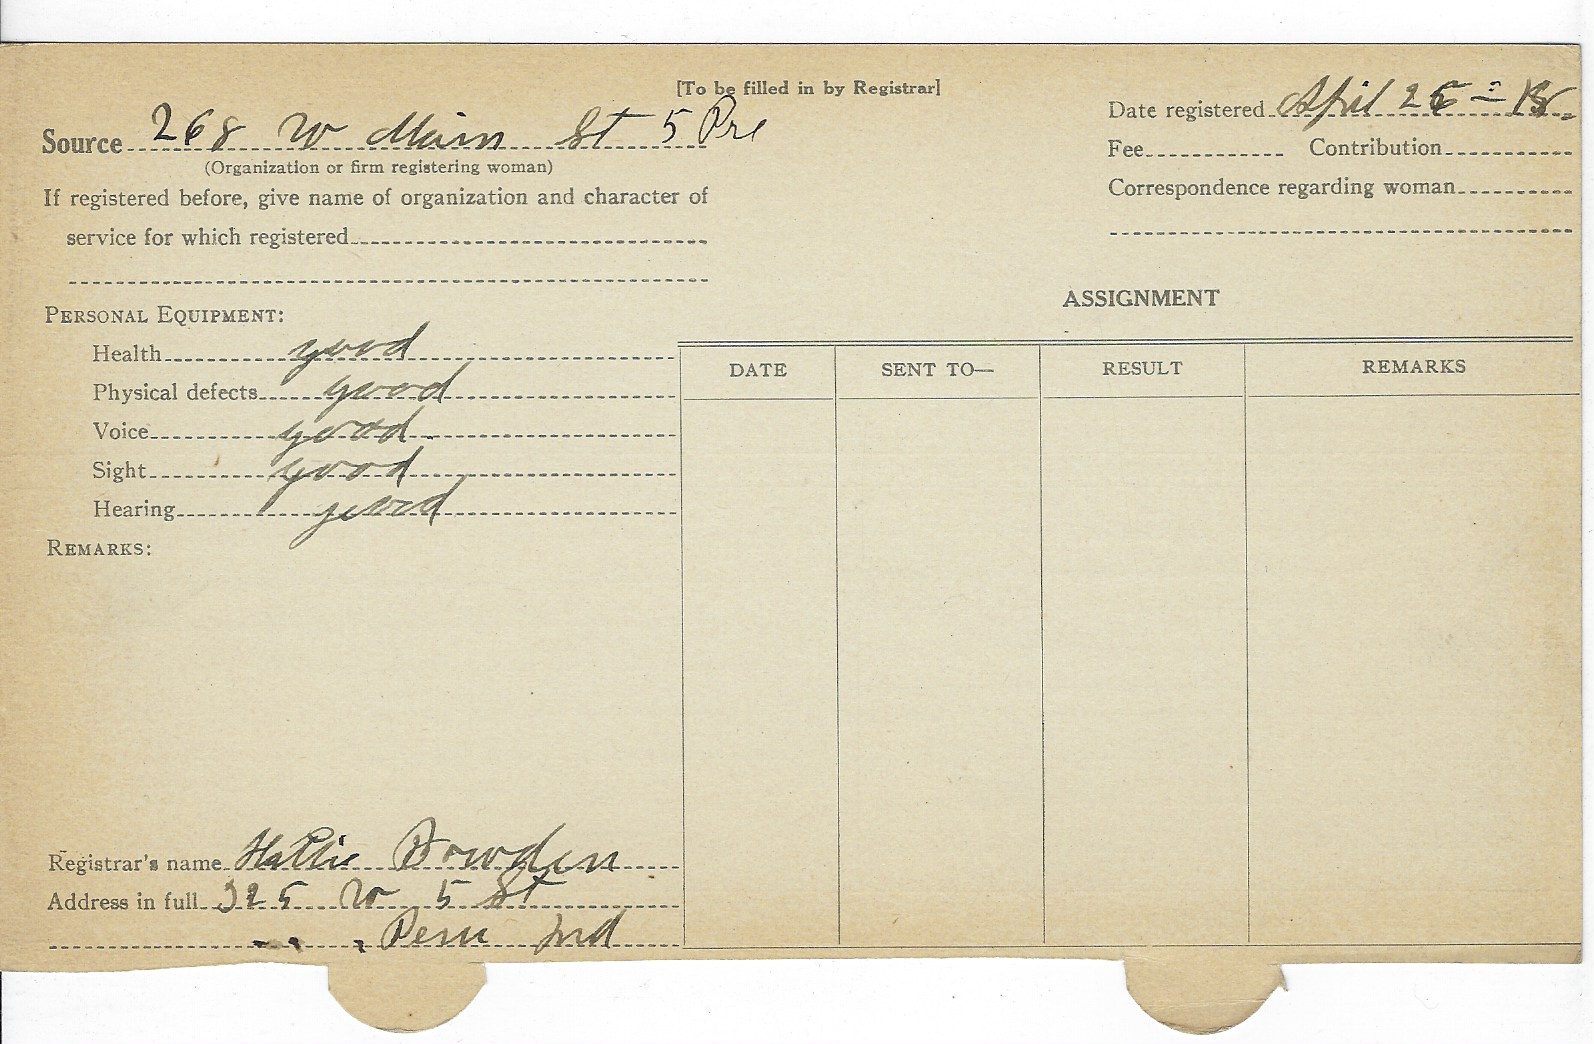 [To be filled in by Registrar]
Source 268 W Main St 5 Pre
(Organization or firm registering woman)
If registered before, give name of organization and character of
service for which registered
Date registered April 26 - 18
Fee Contribution
Correspondence regarding woman
PERSONAL EQUIPMENT:
Health good
Physical defects good
Voice good
Sight good
Hearing good
REMARKS:
ASSIGNMENT
DATE SENT TO— RESULT REMARKS
Registrar's name Hattie Bowden
Address in full 325 W 5 St
Peru Ind